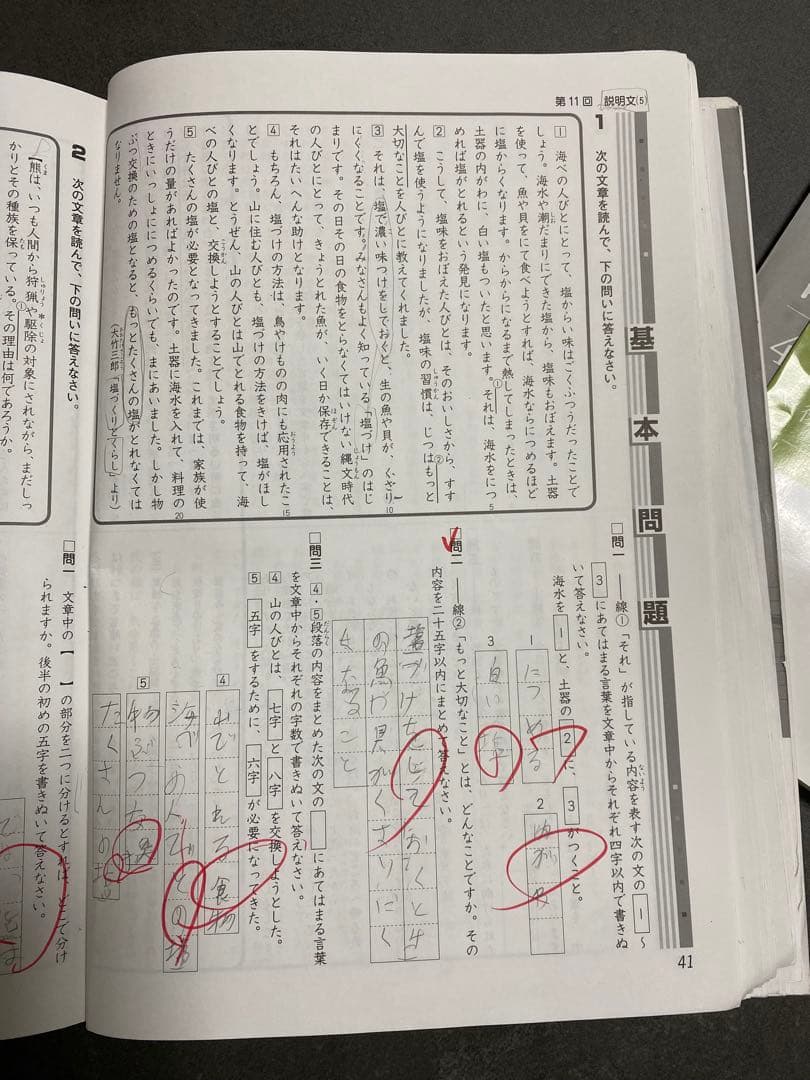 第11回 説明文(5)
基本問題
1 次の文章を読んで、下の問いに答えなさい。
1 海べの人びとにとって、塩からい味はごくふつうだったことで
しょう。海水や潮だまりにできた塩から、塩味もおぼえます。土器
を使って、魚や貝をにて食べようとすれば、海水ならにつめるほど
に塩からくなります。からからになるまで熱してしまったときは、
土器の内がわに、白い塩もついたと思います。①それは、海水をにつ
めれば塩がとれるという発見になります。
2 こうして、塩味をおぼえた人びとは、そのおいしさから、すす
んで塩を使うようになりましたが、塩味の習慣は、じつは②もっと
大切なことを人びとに教えてくれました。
3 それは、塩で濃い味つけをしておくと、生の魚や貝が、くさり
にくくなることです。みなさんもよく知っている「塩づけ」のはじ
まりです。その日その日の食物をとらなくてはいけない縄文時代
の人びとにとって、きょうとれた魚が、いく日か保存できることは、
それはたいへんな助けとなります。
4 もちろん、塩づけの方法は、鳥やけものの肉にも応用されたこ
とでしょう。山に住む人びとも、塩づけの方法をきけば、塩がほし
くなります。とうぜん、山の人びとは山でとれる食物を持って、海
べの人びとの塩と、交換しようとすることでしょう。
5 たくさんの塩が必要となってきました。これまでは、家族が使
うだけの量があればよかったのです。土器に海水を入れて、料理の
ときにいっしょにつめるくらいでも、まにあいました。しかし物
ぶつ交換のための塩となると、もっとたくさんの塩がとれなくては
なりません。
(大竹三郎「塩づくりとくらし」より)
問一 ――線①「それ」が指している内容を表す次の文の 1 〜
3 にあてはまる言葉を文章中からそれぞれ四字以内で書きぬ
いて答えなさい。
海水を 1 と、土器の 2 に、 3 がつくこと。
1 につめる
2 内がわ
3 白い塩
問二 ――線②「もっと大切なこと」とは、どんなことですか。その
内容を二十五字以内にまとめて答えなさい。
塩づけをしておくと生
の魚や貝がくさりにく
くなること
問三 4・5段落の内容をまとめた次の文の にあてはまる言葉
を文章中からそれぞれの字数で書きぬいて答えなさい。
4 山の人びとは、 七字 と 八字 を交換しようとした。
5 五字 をするために、 六字 が必要になってきた。
4 山でとれる食物
海べの人びとの塩
5 物ぶつ交換
たくさんの塩
2 次の文章を読んで、下の問いに答えなさい。
【熊は、いつも人間から狩猟や駆除の対象にされながら、まだしっ
かりとその種族を保っている。①その理由は何であろうか。
問一 文章中の【 】の部分を二つに分けるとすれば、どこで分け
られますか。後半の初めの五字を書きぬいて答えなさい。
41